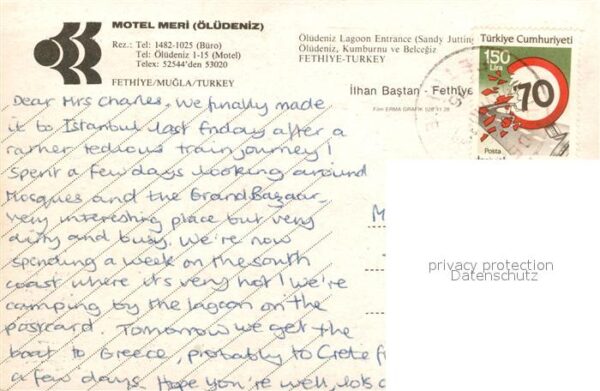 MOTEL MERİ (ÖLÜDENİZ)
Rez.: Tel: 1482-1025 (Büro)
Tel: Ölüdeniz 1-15 (Motel)
Telex: 52544'den 53020
FETHİYE/MUĞLA/TURKEY
Ölüdeniz Lagoon Entrance (Sandy Jutting
Ölüdeniz, Kumburnu ve Belceğiz
FETHİYE-TURKEY
İlhan Baştan - Fethiye
Film ERMA GRAFİK 528 11 28
Türkiye Cumhuriyeti
150
Lira
70
Posta
Dear Mrs Charles, we finally made
it to Istanbul last friday after a
rather tedious train journey! I
spent a few days looking around
Mosques and the Grand Bazaar -
very interesting place but very
dirty and busy. We're now
spending a week on the south
coast where it's very hot! We're
camping by the lagoon on the
postcard. Tomorrow we get the
boat to Greece, probably to Crete f
a few days. Hope you're well, lots o
M
privacy protection
Datenschutz